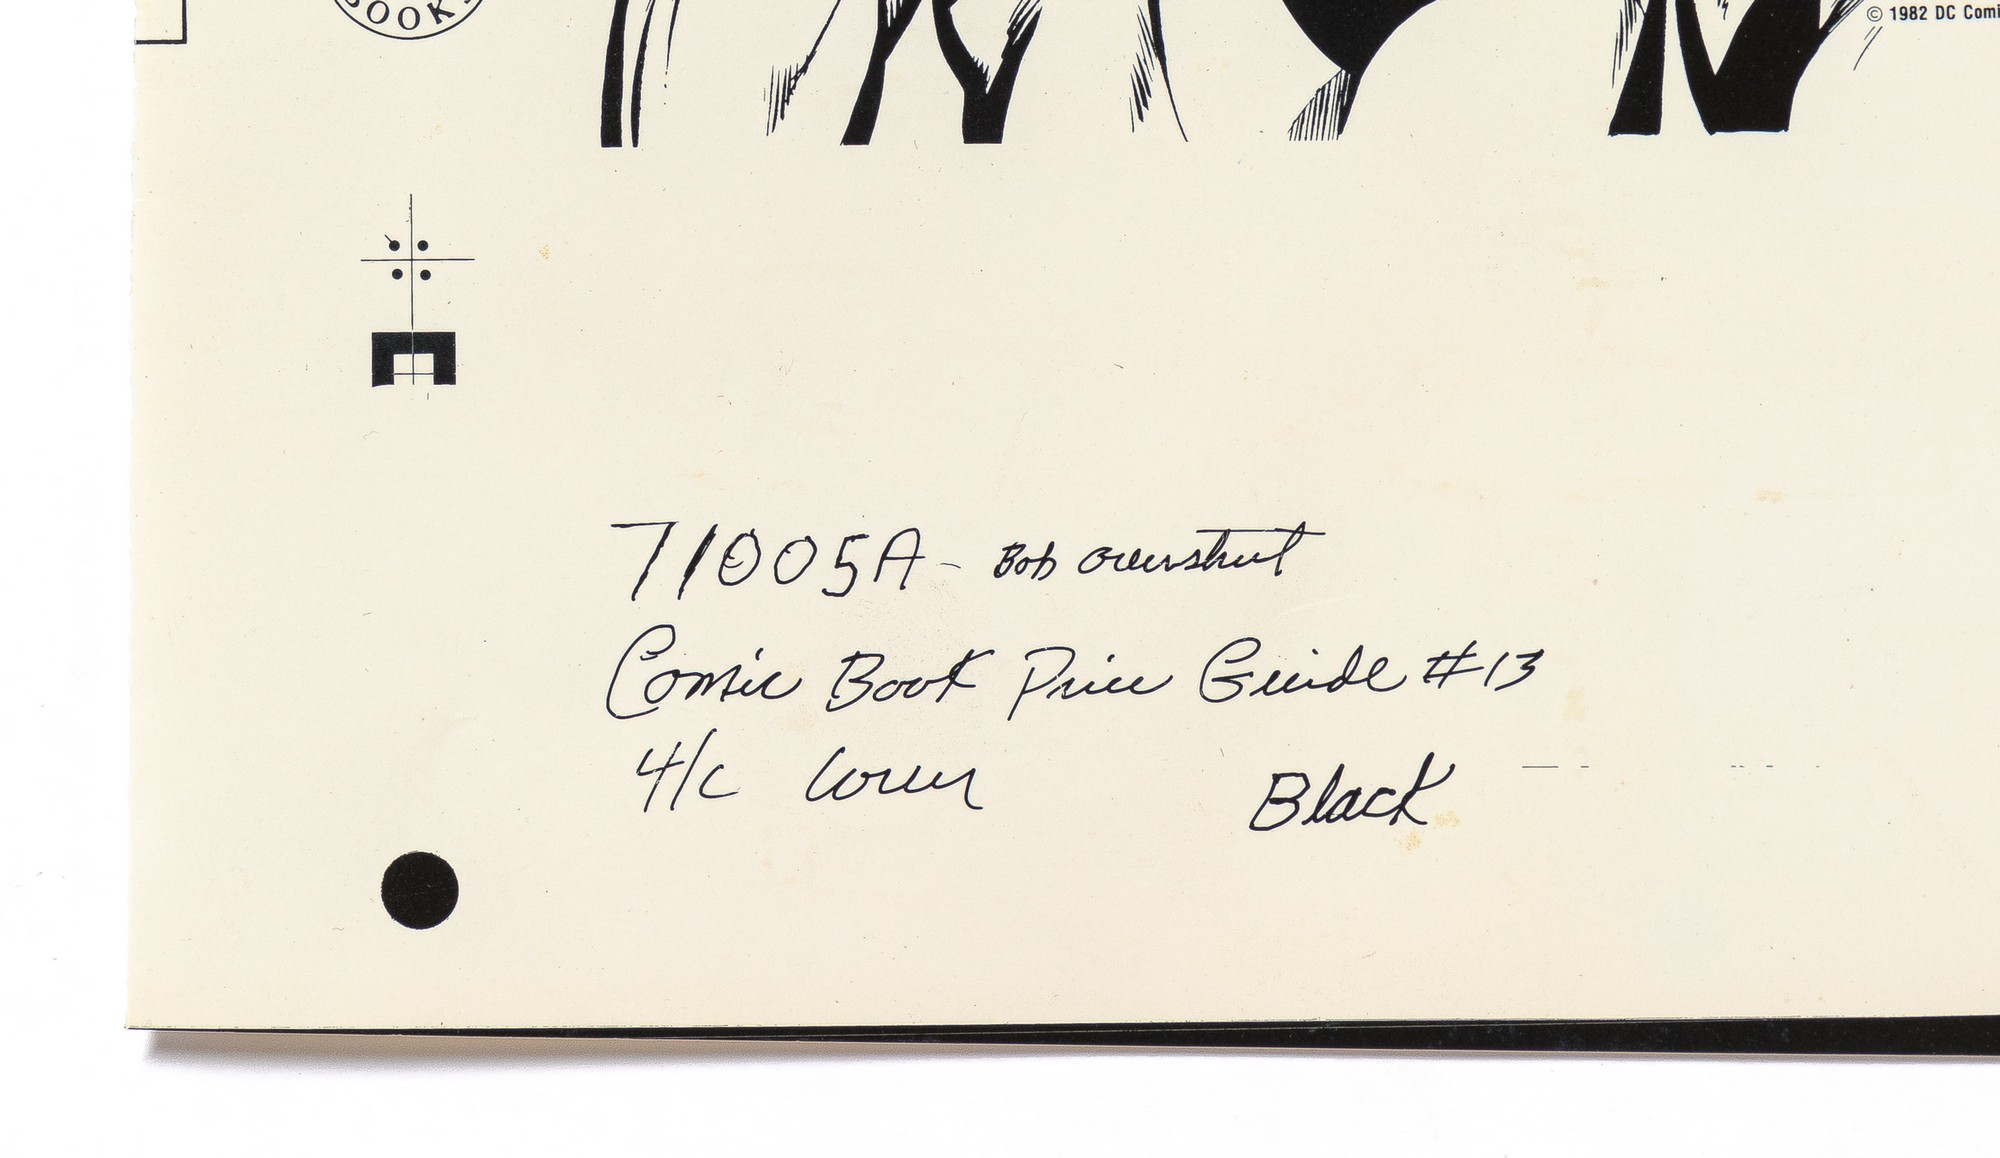 BOOKS
© 1982 DC Comi
71005A - Bob Overstreet
Comic Book Price Guide #13
4/c Cover Black